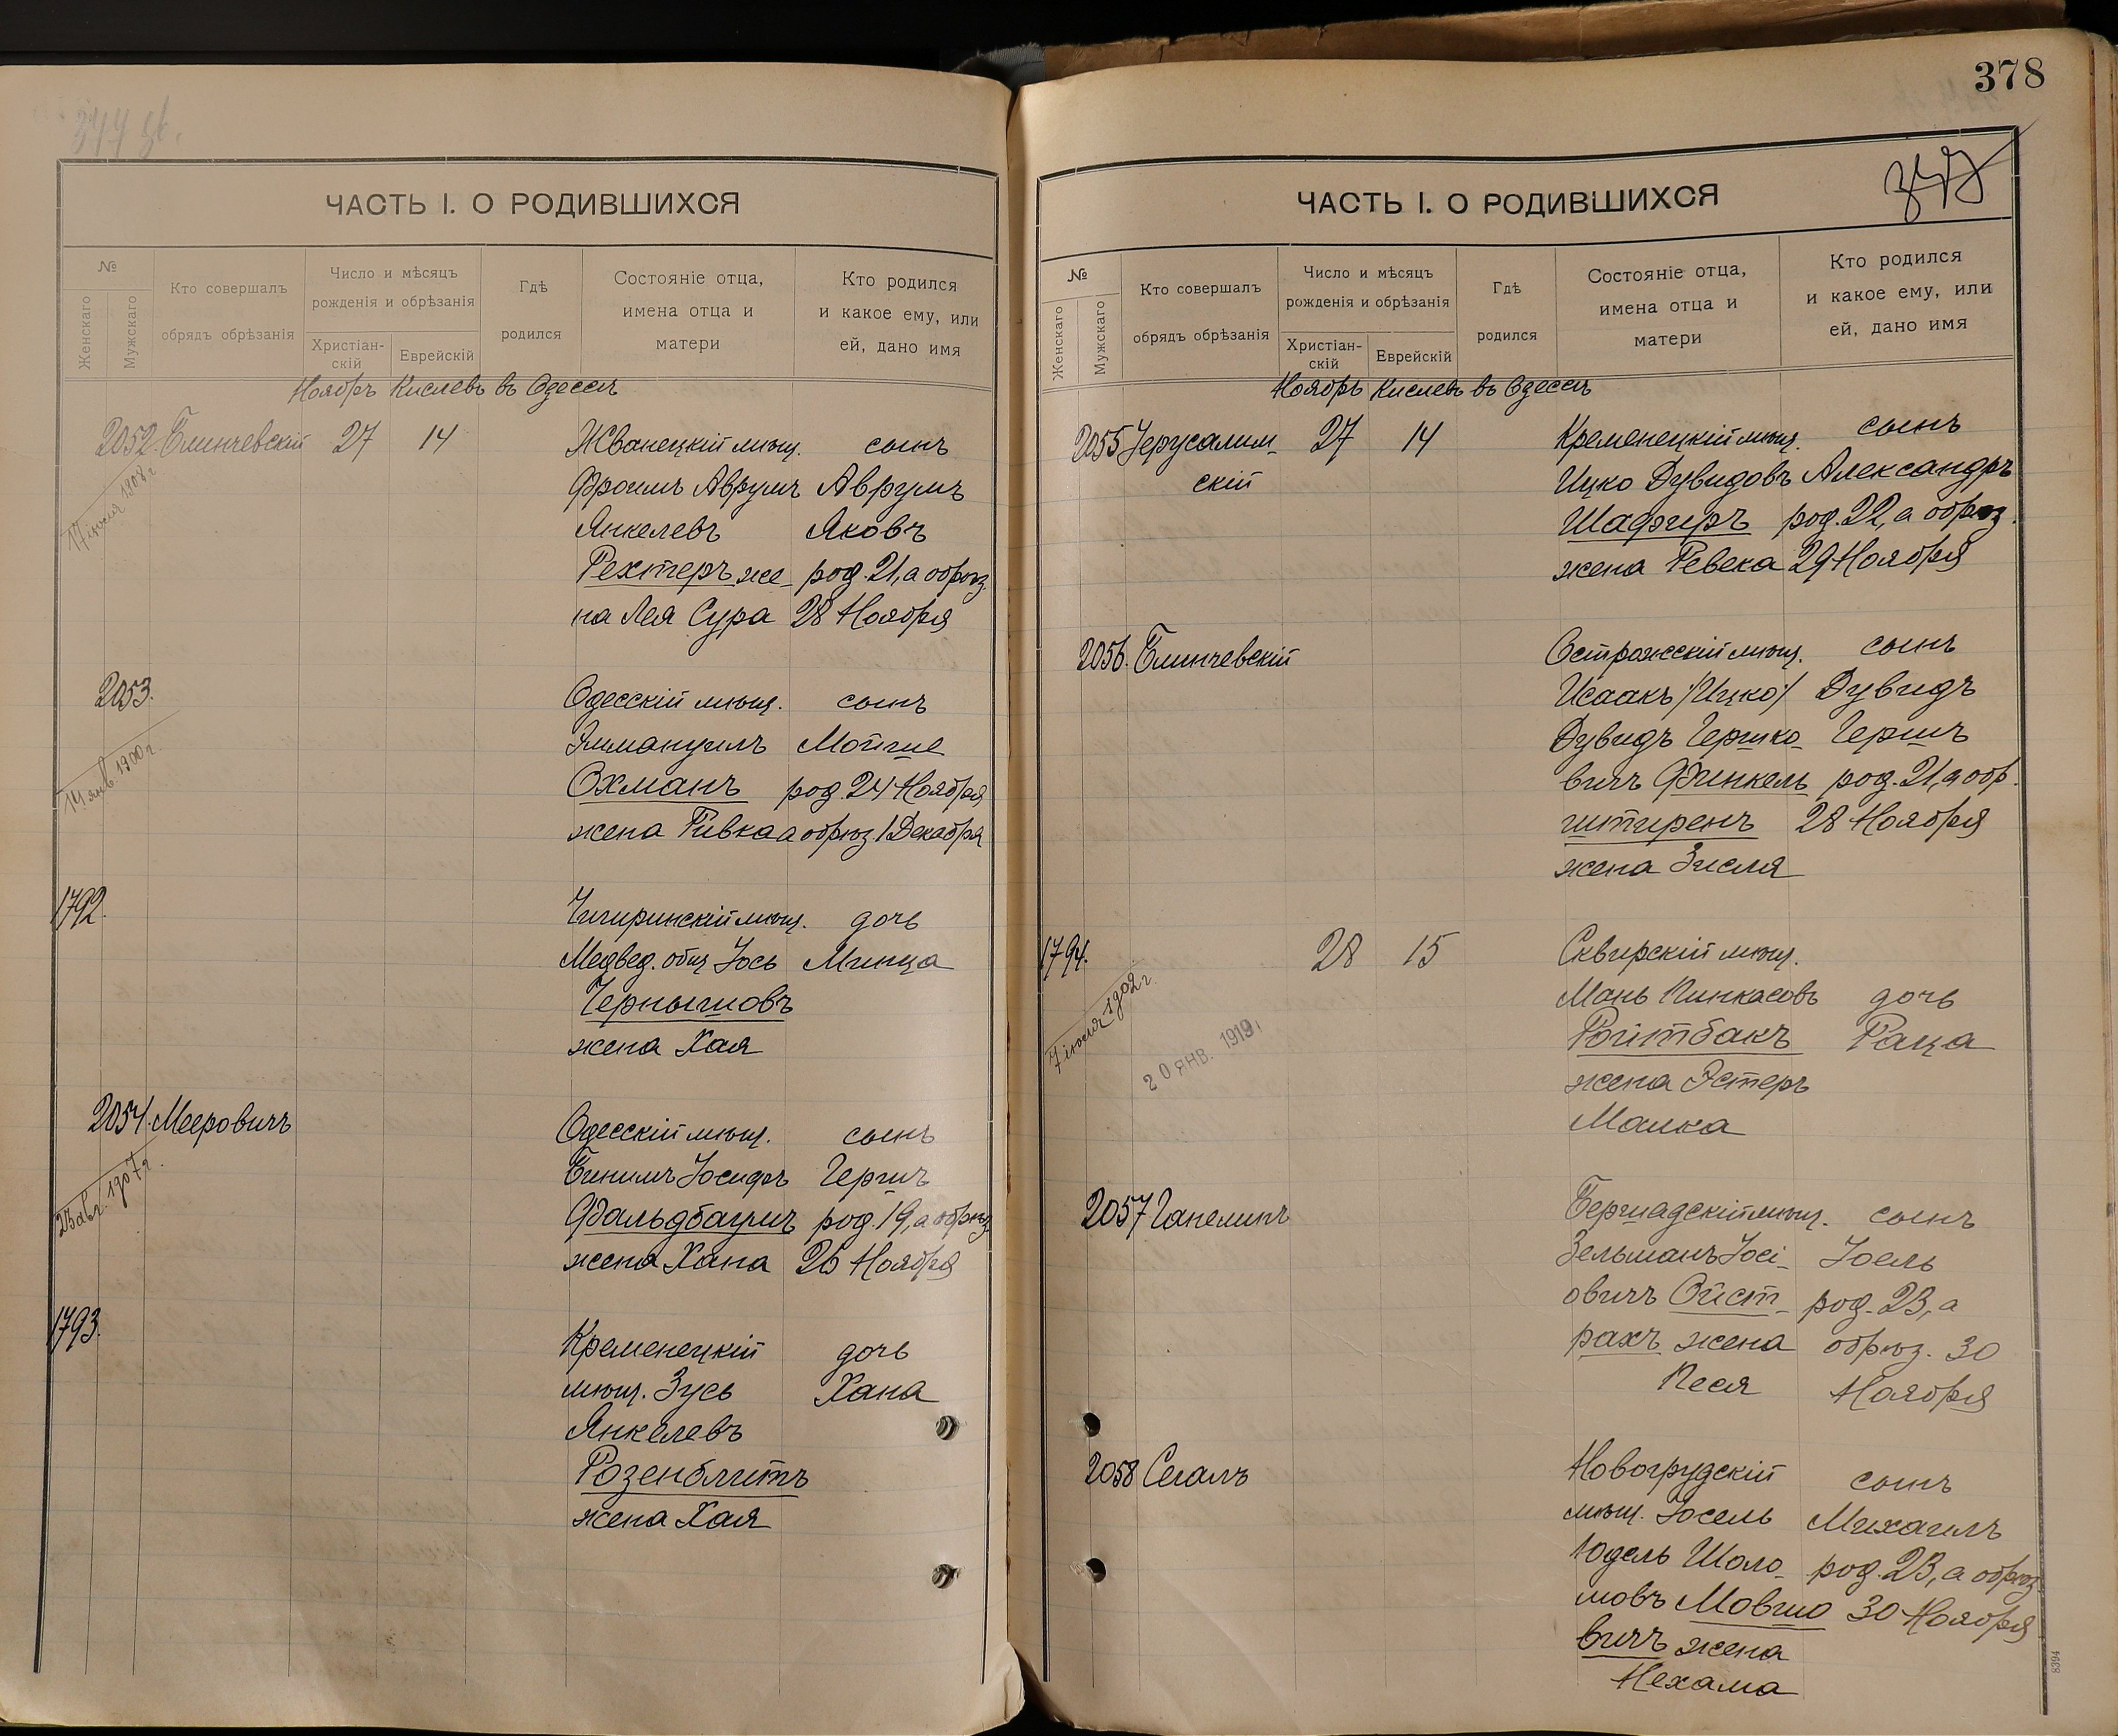 ЧАСТЬ I. О РОДИВШИХСЯ
№
Женскаго
Мужскаго
Кто совершалъ
обрядъ обрѣзанія
Число и мѣсяцъ
рожденія и обрѣзанія
Христіан-
скій
Еврейскій
Гдѣ
родился
Состояніе отца,
имена отца и
матери
Кто родился
и какое ему, или
ей, дано имя
Ноябрь Кислевъ въ Одессѣ
2052. Блинчевскій 27 14 Жванецкій мѣщ. сынъ
17 іюля 1908 г.
Фроимъ Аврумъ Аврумъ
Янкелевъ Яковъ
Рехтеръ же- род. 21, а обрѣз.
на Лея Сура 28 Ноября
2053. Одесскій мѣщ. сынъ
14 янв 1900 г.
Эммануилъ Мойше
Охманъ род. 24 Ноября
жена Ривка а обрѣз 1 Декабря
1792. Чигиринскій мѣщ. дочь
Медвед. общ Іось Минца
Чернышовъ
жена Хая
2054. Мееровичъ Одесскій мѣщ. сынъ
23 авг. 1907 г.
Бинимъ Іосифъ Гершъ
Фальдбаумъ род. 19, а обрѣз
жена Хана 26 Ноября
1793. Кременецкій дочь
мѣщ. Зусь Хана
Янкелевъ
Розенблитъ
жена Хая
378
347
ЧАСТЬ I. О РОДИВШИХСЯ
№
Женскаго
Мужскаго
Кто совершалъ
обрядъ обрѣзанія
Число и мѣсяцъ
рожденія и обрѣзанія
Христіан-
скій
Еврейскій
Гдѣ
родился
Состояніе отца,
имена отца и
матери
Кто родился
и какое ему, или
ей, дано имя
Ноябрь Кислевъ въ Одессѣ
2055 Іерусалим- 27 14 Кременецкій мѣщ. сынъ
скій Ицко Дувидовъ Александръ
Шафиръ род. 22, а обрѣз.
жена Ревека 29 Ноября
2056. Блинчевскій Острожскій мѣщ. сынъ
Исаакъ /Ицко/ Дувидъ
Дувидъ Гершко- Гершъ
вичъ Финкель род. 21, а обр.
штиренъ 28 Ноября
жена Зисля
1794. 28 15 Сквирскій мѣщ.
7 іюля 1902 г.
20 ЯНВ. 1919
Мань Пинкасовъ дочь
Ройтбакъ Раца
жена Эстеръ
Малка
2057 Ганелинъ Бершадскій мѣщ. сынъ
Зельманъ Іосі- Іоель
овичъ Ойст- род. 23, а
рахъ жена обрѣз. 30
Песя Ноября
2058 Сегалъ Новогрудскій сынъ
мѣщ. Іосель Михаилъ
Юдель Шоло- род. 23, а обрѣз
мовъ Мовшо 30 Ноября
вичъ жена
Нехама
8394